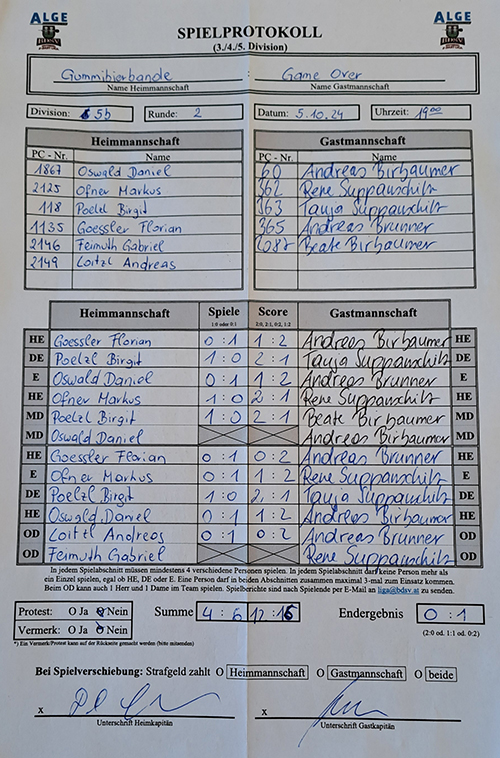 ALGE
SPIELPROTOKOLL
ALGE
(3./4./5. Division)
Gummibierbande : Game Over
Name Heimmannschaft Name Gastmannschaft
Division: 5b Runde: 2 Datum: 5.10.24 Uhrzeit: 19 00
Heimmannschaft Gastmannschaft
PC - Nr. Name PC - Nr. Name
1867 Oswald Daniel 60 Andreas Birbaumer
2125 Ofner Markus 362 Rene Suppanschitz
118 Poelzl Birgit 363 Tanja Suppanschitz
1135 Goessler Florian 365 Andreas Brunner
2146 Feimuth Gabriel 2087 Beate Birbaumer
2149 Loitzl Andreas
Heimmannschaft Spiele Score Gastmannschaft
1:0 oder 0:1 2:0, 2:1, 0:2, 1:2
HE Goessler Florian 0:1 1:2 Andreas Birbaumer HE
DE Poelzl Birgit 1:0 2:1 Tanja Suppanschitz DE
E Oswald Daniel 0:1 1:2 Andreas Brunner E
HE Ofner Markus 1:0 2:1 Rene Suppanschitz HE
MD Poelzl Birgit 1:0 2:1 Beate Birbaumer MD
MD Oswald Daniel Andreas Birbaumer MD
HE Goessler Florian 0:1 0:2 Andreas Brunner HE
E Ofner Markus 0:1 1:2 Rene Suppanschitz E
DE Poelzl Birgit 1:0 2:1 Tanja Suppanschitz DE
HE Oswald Daniel 0:1 1:2 Andreas Birbaumer HE
OD Loitzl Andreas 0:1 0:2 Andreas Brunner OD
OD Feimuth Gabriel Rene Suppanschitz OD
In jedem Spielabschnitt müssen mindestens 4 verschiedene Personen spielen. In jedem Spielabschnitt darf keine Person mehr als
ein Einzel spielen, egal ob HE, DE oder E. Eine Person darf in beiden Abschnitten zusammen maximal 3-mal zum Einsatz kommen.
Beim OD kann auch 1 Herr und 1 Dame im Team spielen. Spielberichte sind nach Spielende per E-Mail an liga@bdsv.at zu senden.
Protest: O Ja O Nein Summe 4:6 12:16 Endergebnis 0:1
Vermerk: O Ja O Nein (2:0 od. 1:1 od. 0:2)
*) Ein Vermerk/Protest kann auf der Rückseite gemacht werden (bitte mitsenden)
Bei Spielverschiebung: Strafgeld zahlt O Heimmannschaft O Gastmannschaft O beide
x x
Unterschrift Heimkapitän Unterschrift Gastkapitän